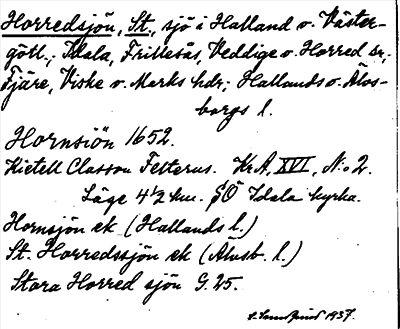 Horredsjön, St., sjö i Halland o. Väster-
götl.; Idala, Frillesås, Veddige o. Horred sr;
Fjäre, Viske o. Marks hdr; Hallands o. Älvs-
borgs l.
Hornsiön 1652.
Kietell Classon Felterus. KrA, XVI, N:o 2.
Läge 4½ km. SÖ Idala kyrka.
Hornsjön ek (Hallands l.)
St. Horredssjön ek (Älvsb. l.)
Stora Horred sjön G. 25.
1937.